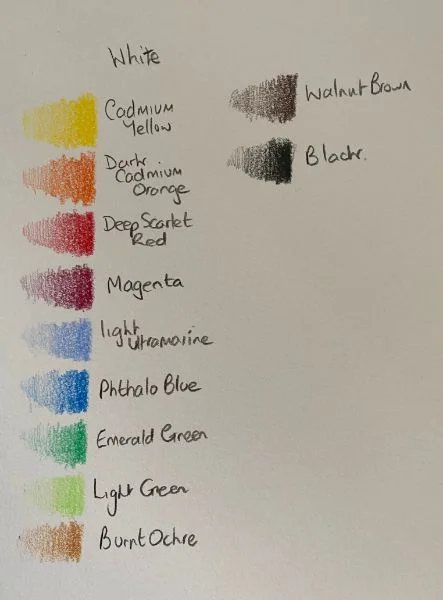 White
Cadmium
Yellow
Dark
Cadmium
Orange
Deep Scarlet
Red
Magenta
light
Ultramarine
Phthalo Blue
Emerald Green
Light Green
Burnt Ochre
Walnut Brown
Black.